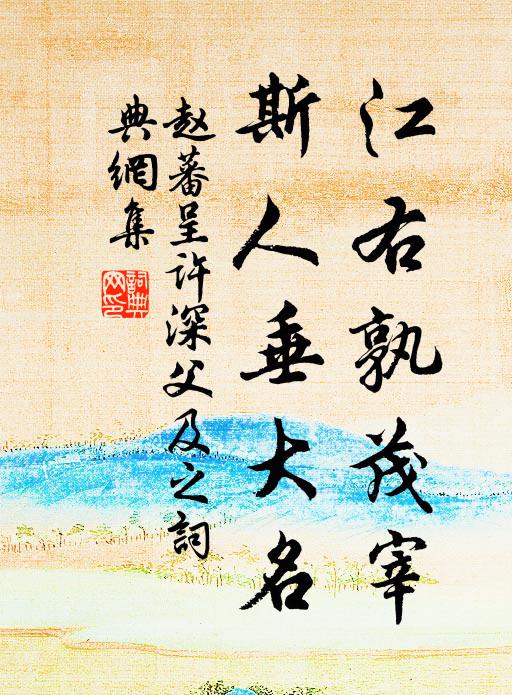 江右孰茂宰
斯人垂大名
赵蕃呈许深父及之词
典網集
詞典网印